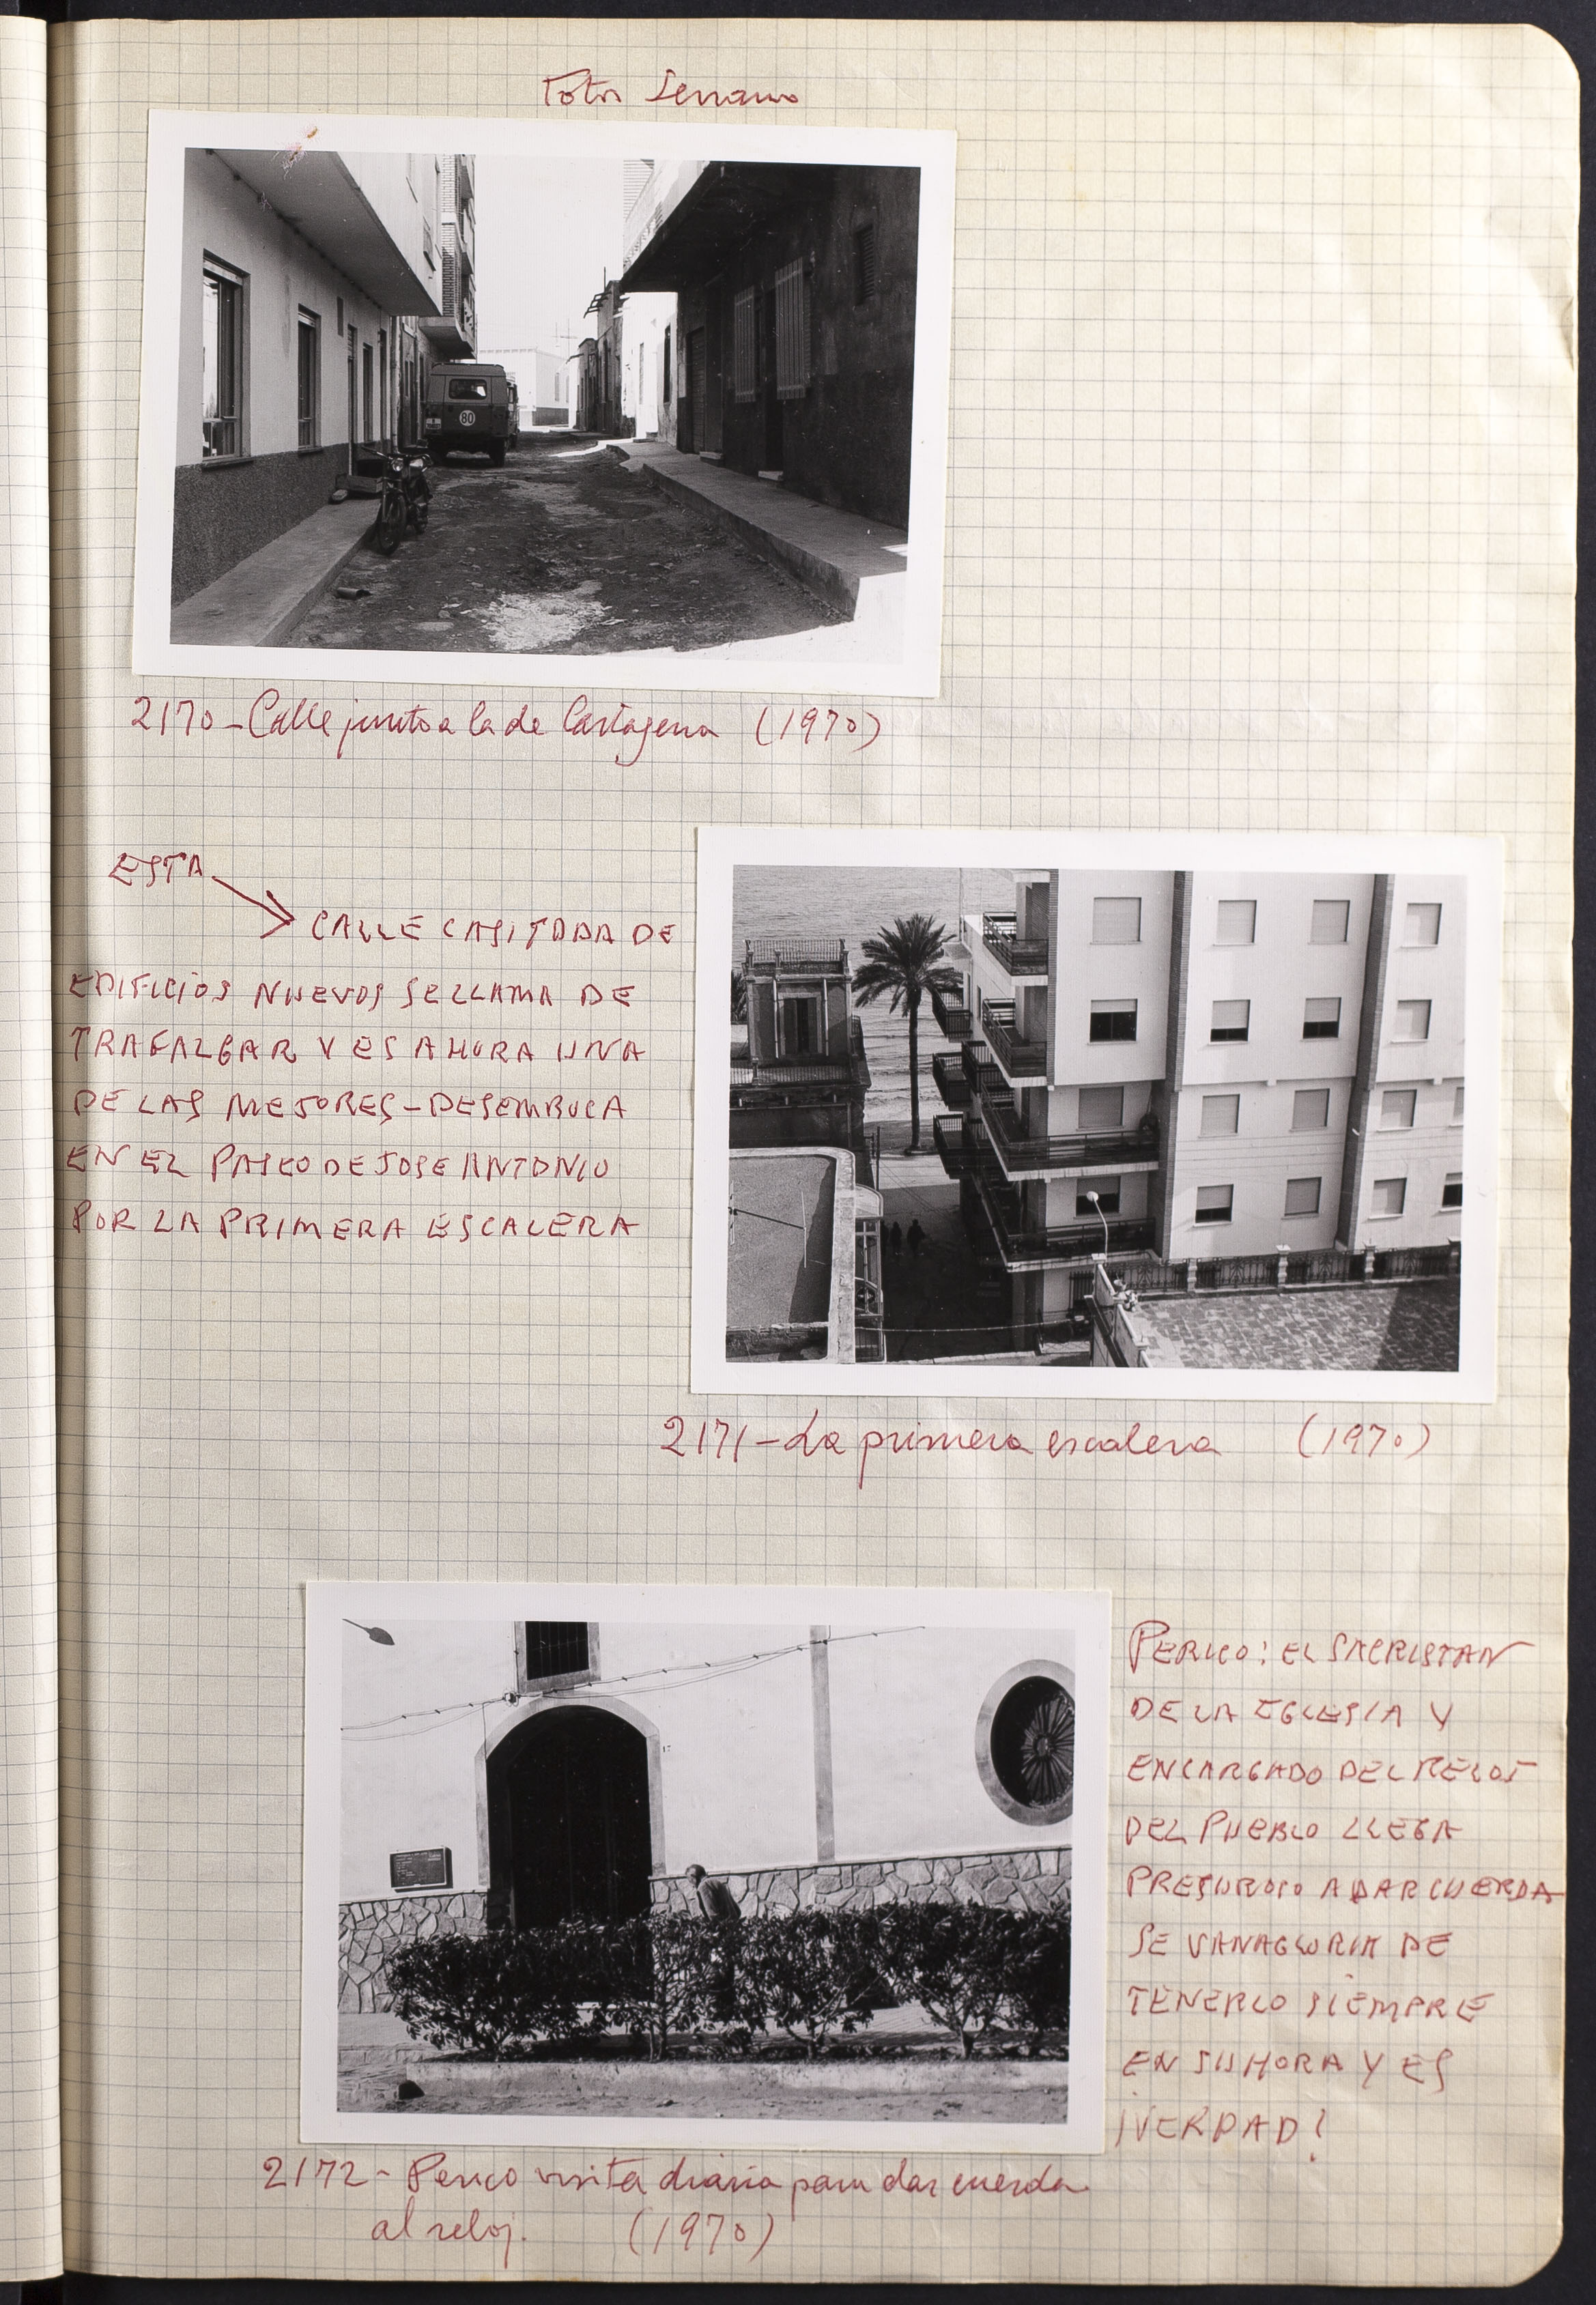 Fotos Serrano
80
2170-Calle junto a la de Cartagena (1970)
ESTA
CALLE CASI TODA DE
EDIFICIOS NUEVOS SE LLAMA DE
TRAFALGAR Y ES AHORA UNA
DE LAS MEJORES-DESEMBOCA
EN EL PASEO DE JOSE ANTONIO
POR LA PRIMERA ESCALERA
2171-La primera escalera (1970)
PERICO: EL SACRISTAN
DE LA IGLESIA Y
ENCARGADO DEL RELOJ
DEL PUEBLO LLEGA
PRESUROSO A DAR CUERDA
SE VANAGLORIA DE
TENERLO SIEMPRE
EN SU HORA Y ES
¡VERDAD!
2172- Perico visita diaria para dar cuerda
al reloj. (1970)